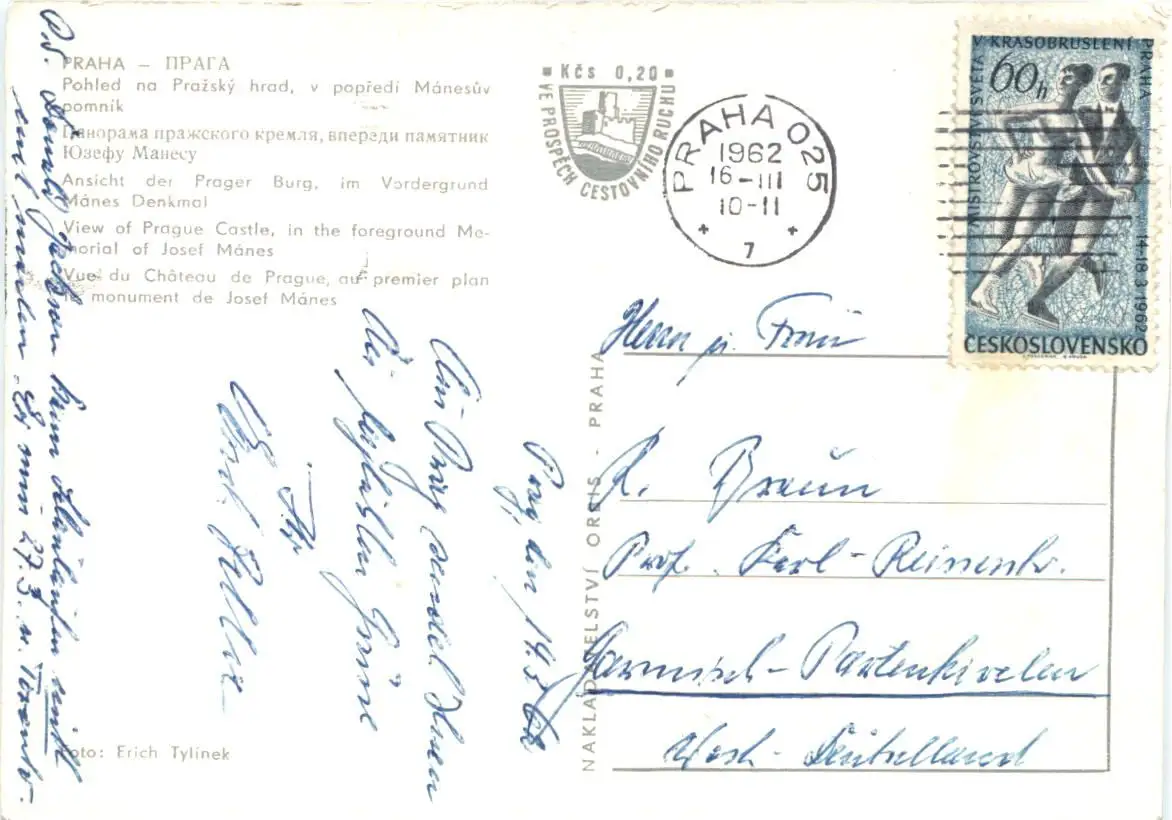 PRAHA – ПРАГА
Pohled na Pražský hrad, v popředí Mánesův
pomník
Панорама пражского кремля, впереди памятник
Юзефу Манесу
Ansicht der Prager Burg, im Vordergrund
Mánes Denkmal
View of Prague Castle, in the foreground Me-
morial of Josef Mánes
Vue du Château de Prague, au premier plan
le monument de Josef Mánes
Foto: Erich Tylínek
NAKLADATELSTVÍ ORBIS - PRAHA
Kčs 0,20
VE PROSPĚCH CESTOVNÍHO RUCHU
PRAHA 025
1962
16-III
10-11
7
MISTROVSTVÍ SVĚTA
V KRASOBRUSLENÍ
PRAHA
14-18.3.1962
60h
ČESKOSLOVENSKO
Herrn u. Frau
R. Braun
Prof. Karl-Reinentr.
Garmisch-Partenkirchen
West-Deutschland
Prag, den 14.3.62
Aus Prag sendet Ihnen
die herzlichsten Grüsse
Ihr
P.S. Donald Jackson kann
nicht
. Er muss 27.3. n. Toronto.